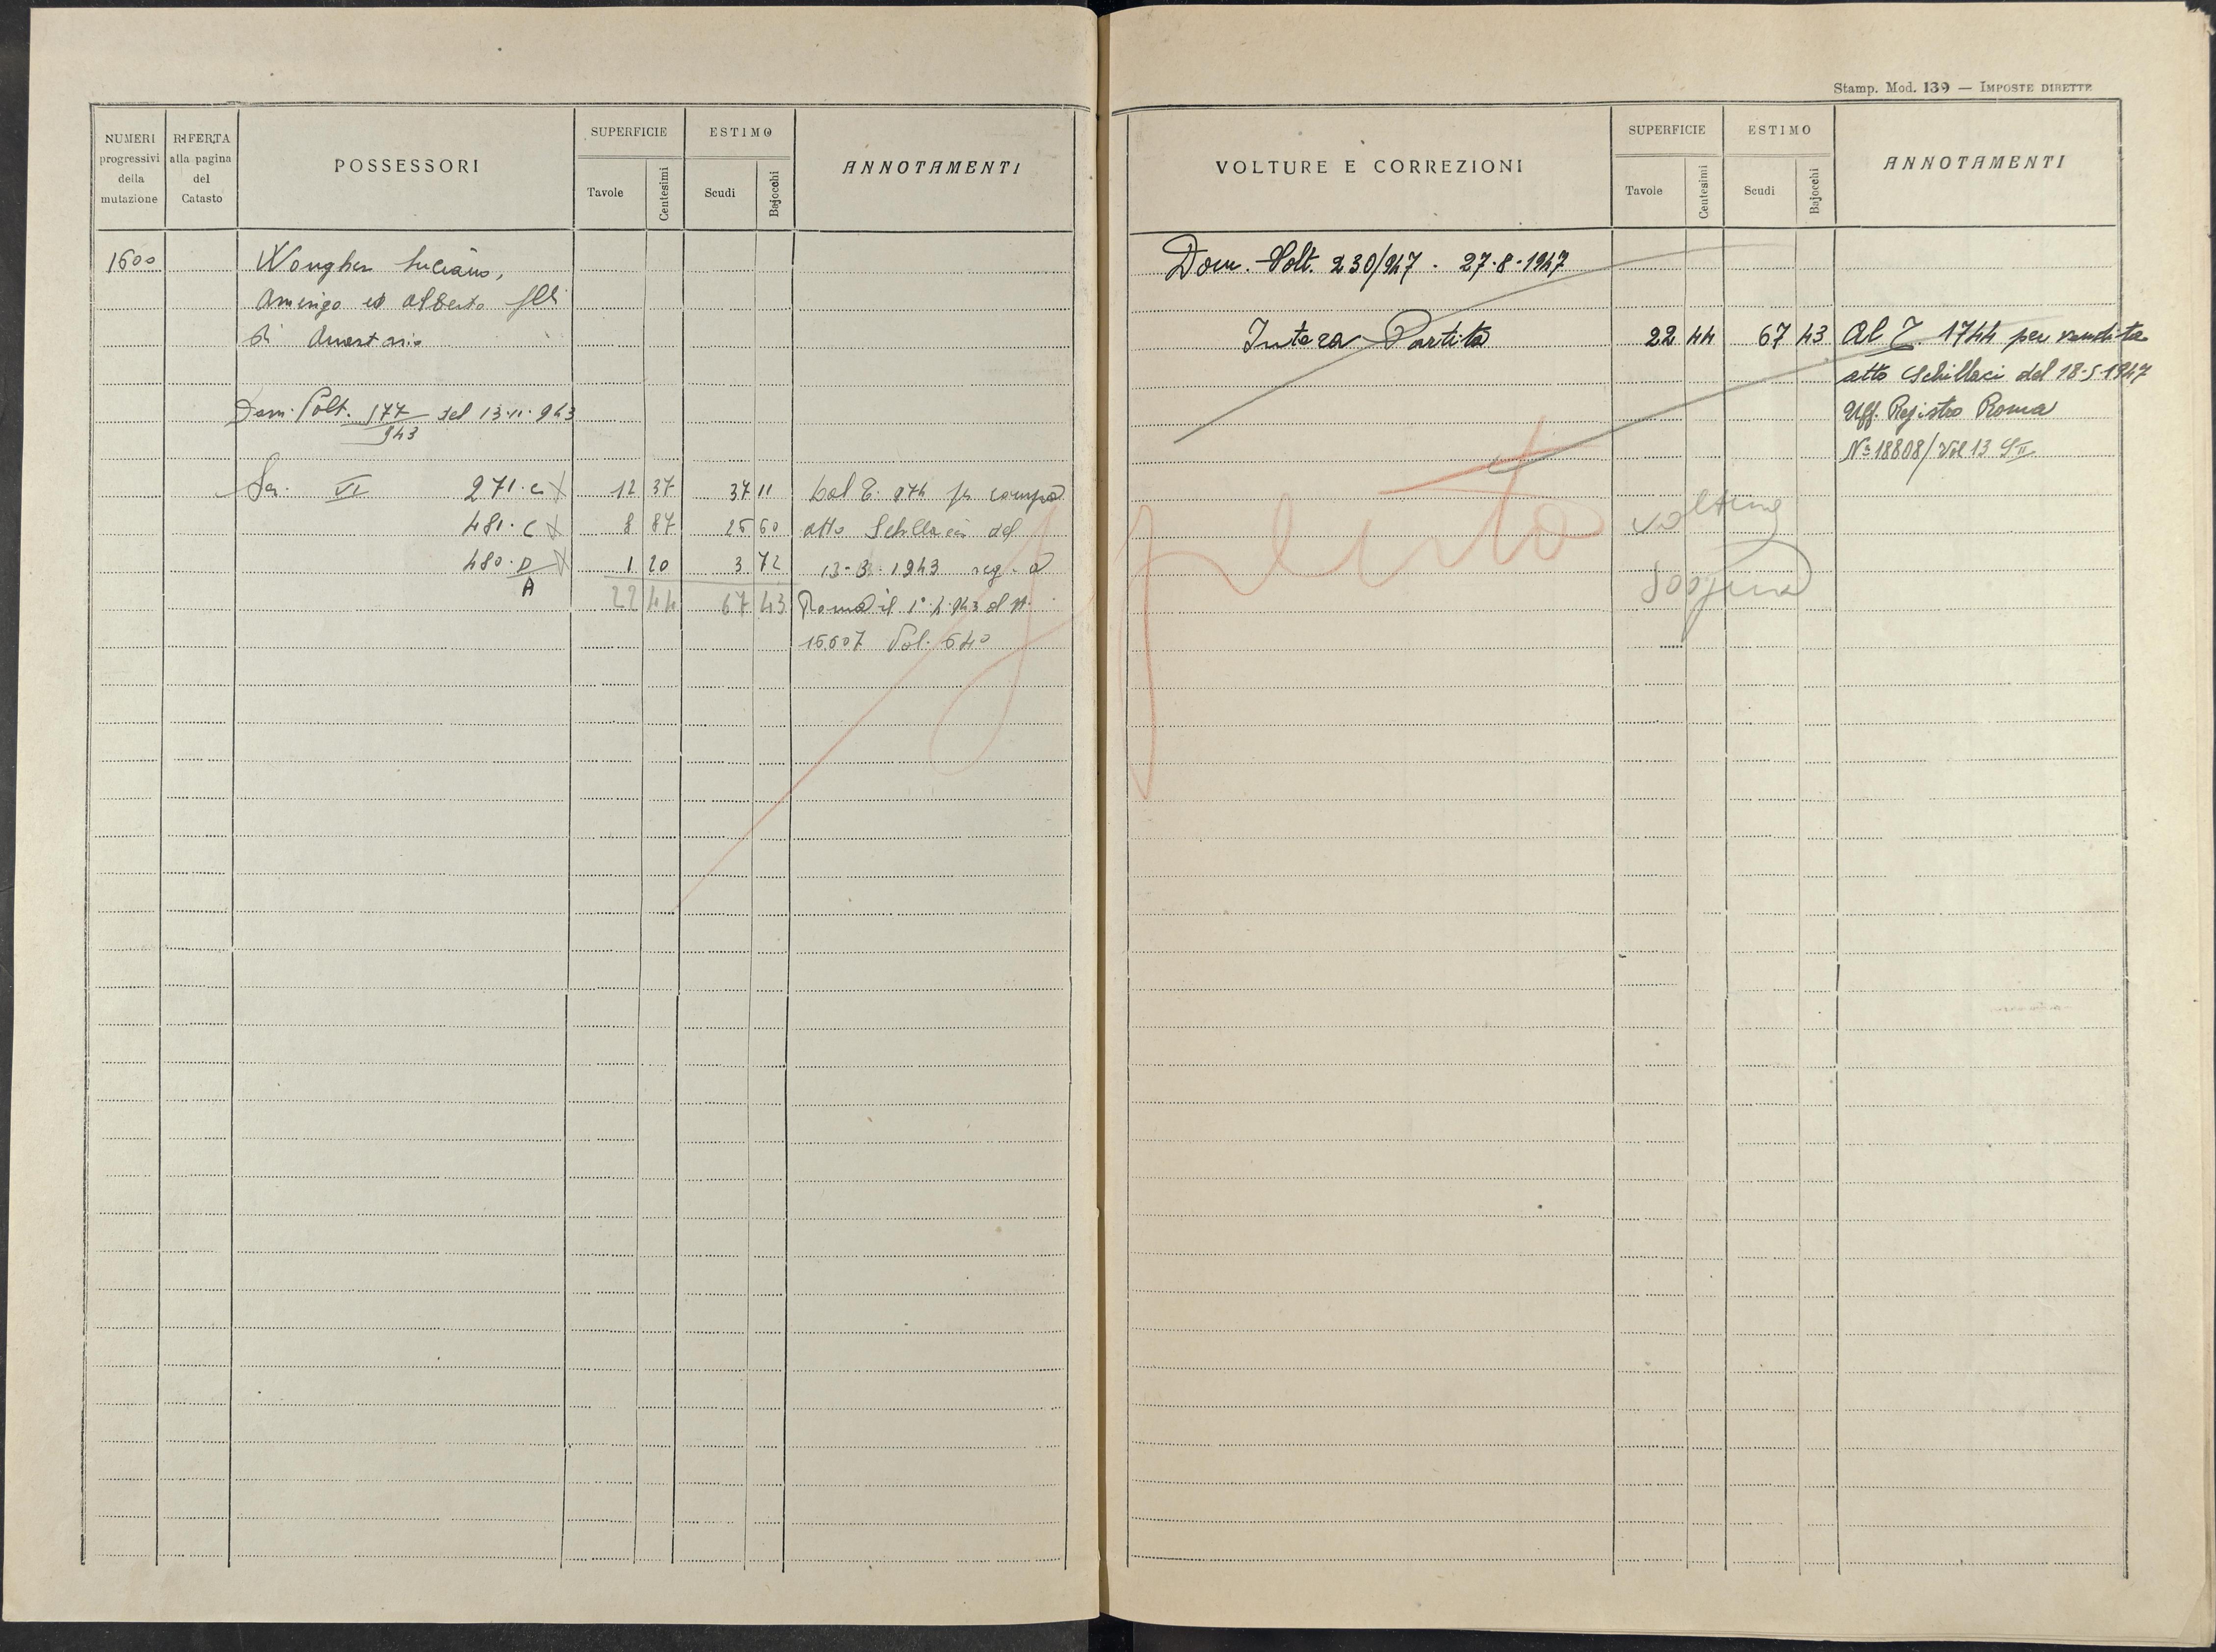 NUMERI progressivi della mutazione
RIFERTA alla pagina del Catasto
POSSESSORI
SUPERFICIE
Tavole
Centesimi
ESTIMO
Scudi
Bajocchi
ANNOTAMENTI
1600
Wongher Luciano,
Amerigo ed Alberto fili
di Anastasio
Dom. Volt. 177/943 del 13.11.943
Sez. VI 271.C 12 37 37 11 Dal T. 974 per compra
481.C 8 87 26 60 atto Schillaci del
480.D/A 1 20 3 72 13-3-1943 reg. a
22 44 67 43 Roma il 1° 4.943 al n.
15607 Vol. 640
Stamp. Mod. 139 — IMPOSTE DIRETTE
VOLTURE E CORREZIONI
SUPERFICIE
Tavole
Centesimi
ESTIMO
Scudi
Bajocchi
ANNOTAMENTI
Dom. Volt. 230/947 . 27-8-1947
Intera Partita 22 44 67 43 Al T. 1744 per vendita
atto Schillaci del 18-5-1947
Uff. Registro Roma
N° 18808/Vol 13 SII
voltura
sospesa